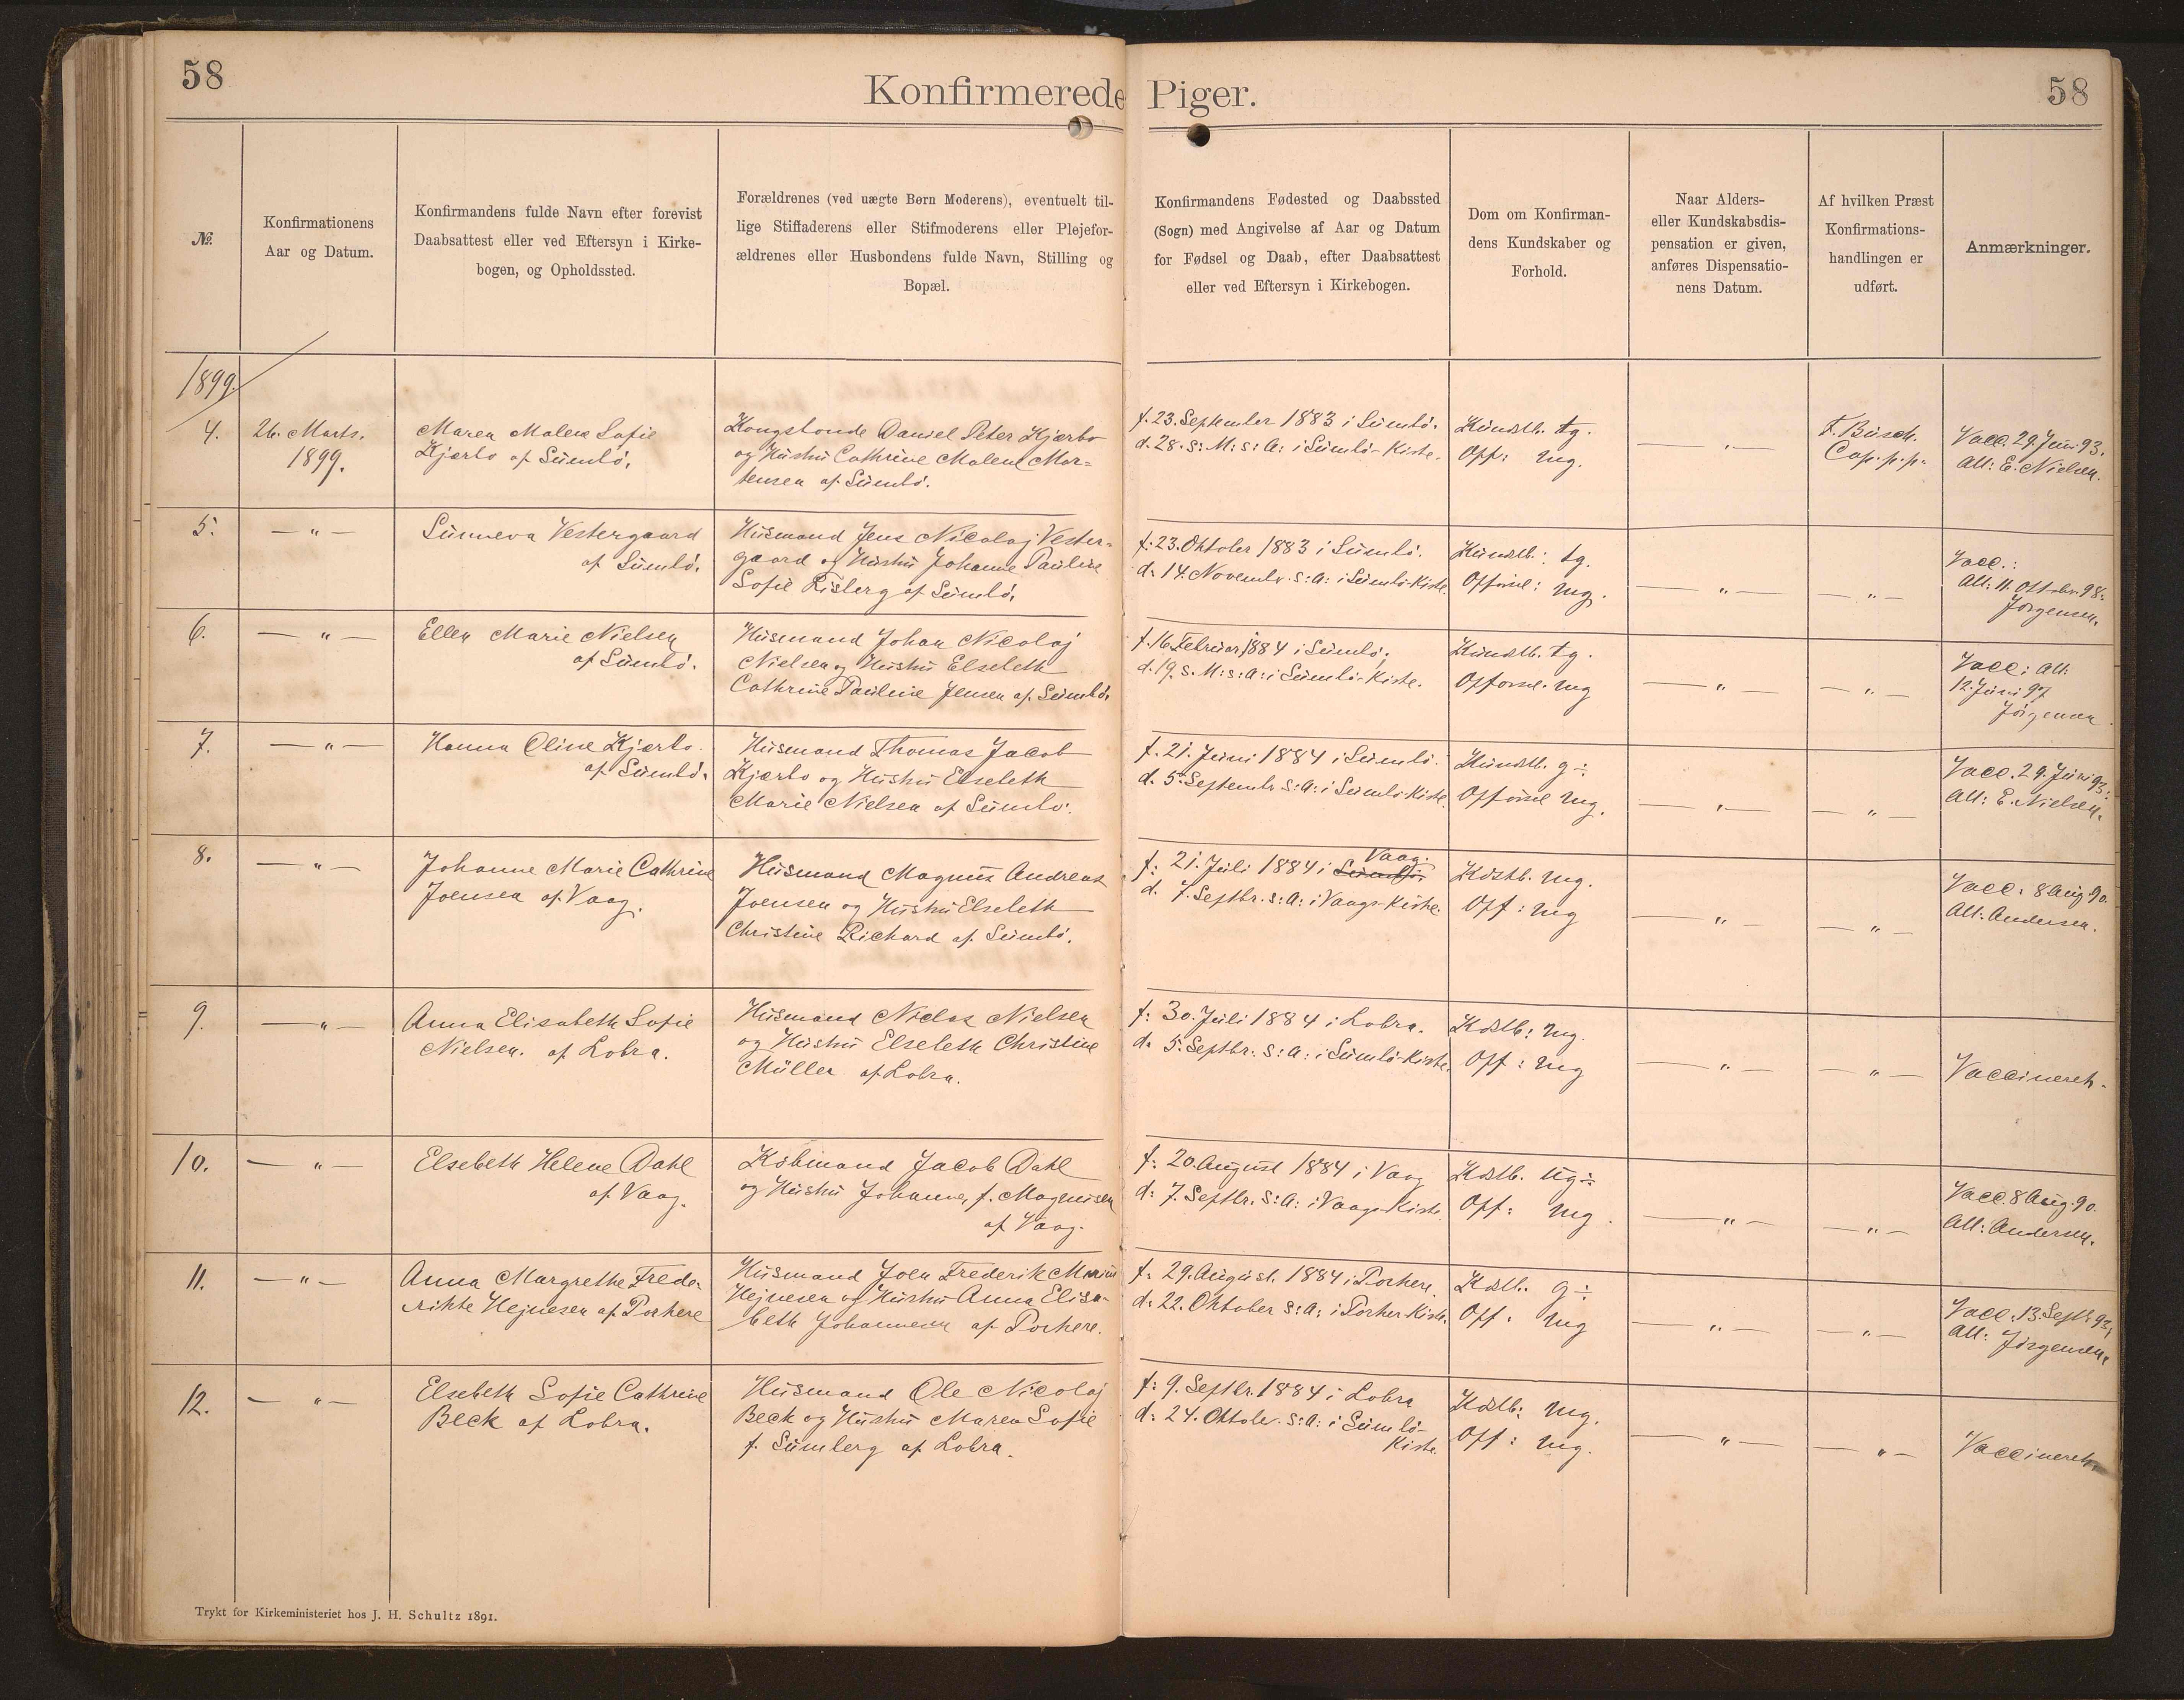 58
Konfirmerede Piger.
58
№.
Konfirmationens
Aar og Datum.
Konfirmandens fulde Navn efter forevist
Daabsattest eller ved Eftersyn i Kirke-
bogen, og Opholdssted.
Forældrenes (ved uægte Børn Moderens), eventuelt til-
lige Stiffaderens eller Stifmoderens eller Plejefor-
ældrenes eller Husbondens fulde Navn, Stilling og
Bopæl.
Konfirmandens Fødested og Daabssted
(Sogn) med Angivelse af Aar og Datum
for Fødsel og Daab, efter Daabsattest
eller ved Eftersyn i Kirkebogen.
Dom om Konfirman-
dens Kundskaber og
Forhold.
Naar Alders-
eller Kundskabsdis-
pensation er given,
anføres Dispensatio-
nens Datum.
Af hvilken Præst
Konfirmations-
handlingen er
udført.
Anmærkninger.
1899.
4.
26. Marts.
1899.
Maren Malene Sofie
Kjærbo af Sumbø.
Kongsbonde Daniel Peter Kjærbo
og Hustru Cathrine Malene Mor=
tensen af Sumbø.
f. 23. September 1883 i Sumbø.
d. 28. s: M: s: A: i Sumbø-Kirke.
Kundsk. tg.
Opf: mg.
— „ —
F. Busch.
Cap. p. p.
Vacc. 29. Juni 93.
Att: E. Nielsen.
5.
— „ —
Sunneva Vestergaard
af Sumbø.
Husmand Jens Nicolaj Vester=
gaard og Hustru Johanne Pauline
Sofie Risberg af Sumbø.
f. 23. Oktober 1883 i Sumbø.
d. 14. Novembr. s: A: i Sumbø-Kirke.
Kundsk.: tg.
Opførsel: mg.
— „ —
— „ —
Vacc.:
Att: 11. Oktobr. 98.
Jørgensen.
6.
— „ —
Ellen Marie Nielsen
af Sumbø.
Husmand Johan Nicolaj
Nielsen og Hustru Elsebeth
Cathrine Pauline Jensen af Sumbø.
f. 16. Februar 1884 i Sumbø.
d. 19. s. M: s: A: i Sumbø-Kirke.
Kundsk. tg.
Opførsel. mg
— „ —
— „ —
Vacc: Att:
12. Juni 97
Jørgensen.
7.
— „ —
Hanna Oline Kjærbo.
af Sumbø.
Husmand Thomas Jacob
Kjærbo og Hustru Elsebeth
Marie Nielsen af Sumbø.
f. 21. Juni 1884 i Sumbø.
d. 5. Septembr. s: A: i Sumbø-Kirke.
Kundsk. g÷
Opførsel mg.
— „ —
— „ —
Vacc. 29. Juni 93.
Att: E. Nielsen.
8.
— „ —
Johanne Marie Cathrine
Joensen af Vaag.
Husmand Magnus Andreas
Joensen og Hustru Elsebeth
Christine Richard af Sumbø.
Vaag.
f: 21. Juli 1884 i Sumbø.
d. 7. Septbr. s: A: i Vaags-Kirke.
Kdsk. mg.
Opf: mg
— „ —
— „ —
Vacc: 8 Aug. 90.
Att: Andersen.
9.
— „ —
Anna Elisabeth Sofie
Nielsen. af Lobra.
Husmand Niclas Nielsen
og Hustru Elsebeth Christine
Müller af Lobra.
f: 30. Juli 1884 i Lobra.
d. 5. Septbr. s: A: i Sumbø-Kirke.
Kdsk: mg.
Opf: mg
— „ —
— „ —
Vaccineret.
10.
— „ —
Elsebeth Helene Dahl
af Vaag.
Købmand Jacob Dahl
og Hustru Johanne, f. Magnusen
af Vaag.
f: 20. August 1884 i Vaag
d: 7. Septbr. s: A: i Vaags-Kirke.
Kdsk. ug÷
Opf: mg.
— „ —
— „ —
Vacc. 8 Aug. 90.
Att: Andersen.
11.
— „ —
Anna Margrethe Frede-
rikke Hejnesen af Porkere
Husmand Joen Frederik Marius
Hejnesen og Hustru Anna Elisa-
beth Johannesen af Porkere.
f: 29. August. 1884 i Porkere.
d: 22. Oktober s: A: i Porker-Kirke.
Kdsk. g÷
Opf: mg
— „ —
— „ —
Vacc. 13. Septb. 93.
Att: Jørgensen.
12.
— „ —
Elsebeth Sofie Cathrine
Beck af Lobra.
Husmand Ole Nicolaj
Beck og Hustru Maren Sofie
f. Sumberg af Lobra.
f: 9. Septbr. 1884 i Lobra
d: 24. Oktobr. s: A: i Sumbø-
Kirke.
Kdsk: mg.
Opf: mg.
— „ —
— „ —
Vaccineret.
Trykt for Kirkeministeriet hos J. H. Schultz 1891.